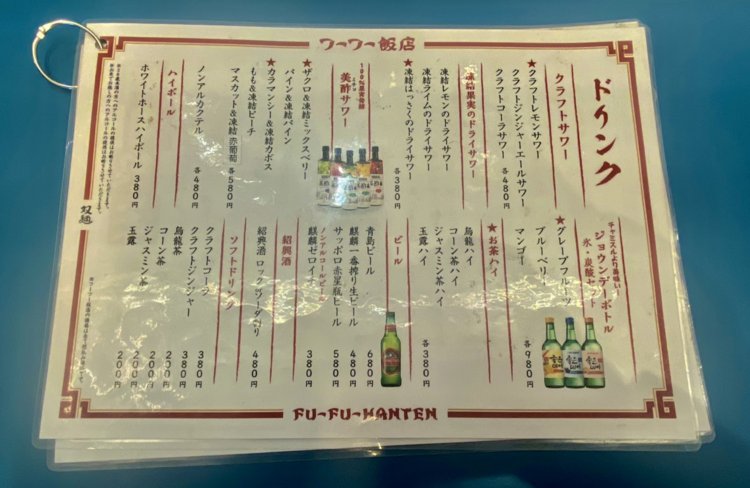 ワーワー飯店
ドリンク
クラフトサワー
★クラフトレモンサワー
クラフトジンジャーエールサワー
クラフトコーラサワー
各480円
凍結果実のドライサワー
凍結レモンのドライサワー
凍結ライムのドライサワー
★凍結はっさくのドライサワー
各380円
100%果実発酵
美酢サワー
★ザクロ&凍結ミックスベリー
パイン&凍結パイン
★カラマンシー&凍結カボス
もも&凍結ピーチ
マスカット&凍結赤葡萄
各580円
ノンアルカクテル
各480円
ハイボール
ホワイトホースハイボール 380円
チャミスルより美味い!
ジョウンデーボトル
氷・炭酸セット
★グレープフルーツ
ブルーベリー
マンゴー
各980円
★お茶ハイ
烏龍ハイ
コーン茶ハイ
ジャスミン茶ハイ
玉露ハイ
各380円
ビール
青島ビール 680円
麒麟一番搾り生ビール 480円
サッポロ赤星瓶ビール 580円
ノンアルコールビール
麒麟ゼロイチ 380円
紹興酒
紹興酒 ロック/ソーダ割り 480円
ソフトドリンク
クラフトコーラ 380円
クラフトジンジャー 380円
烏龍茶 200円
コーン茶 200円
ジャスミン茶 200円
玉露 200円
FU-FU-HANTEN